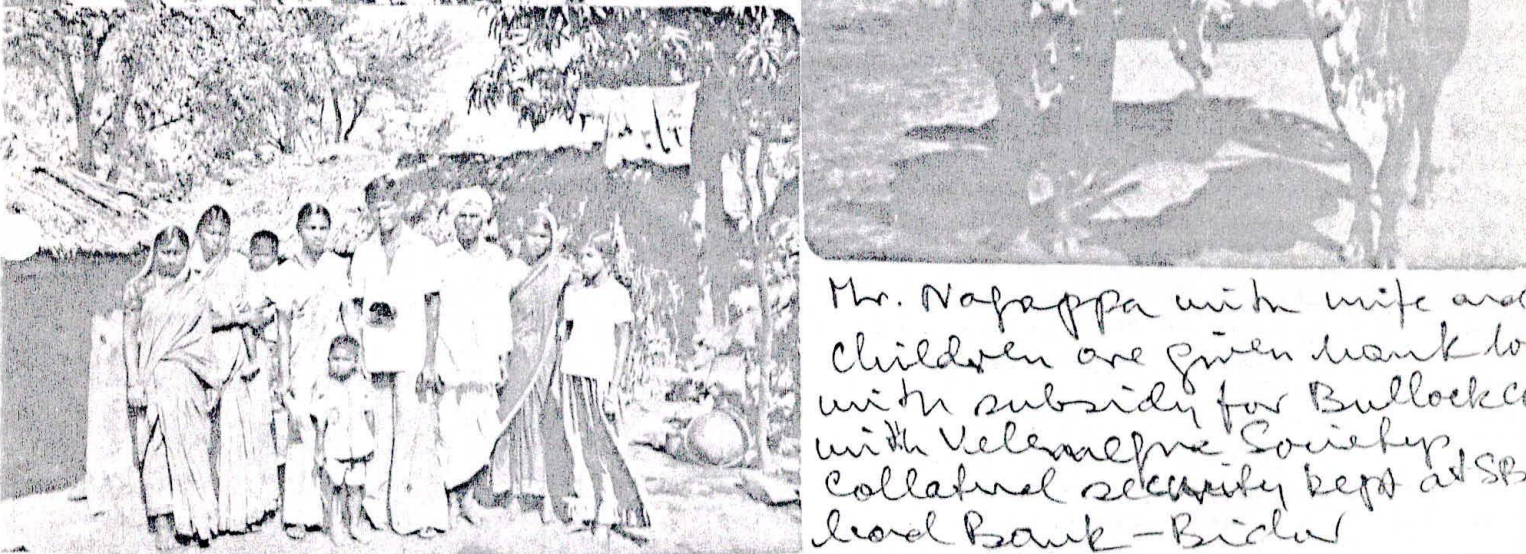 Mr. Nagappa with wife and
children are given bank lo
with subsidy for Bullock c
with Velemegna Society
collateral security kept at SB
Lead Bank - Bidar